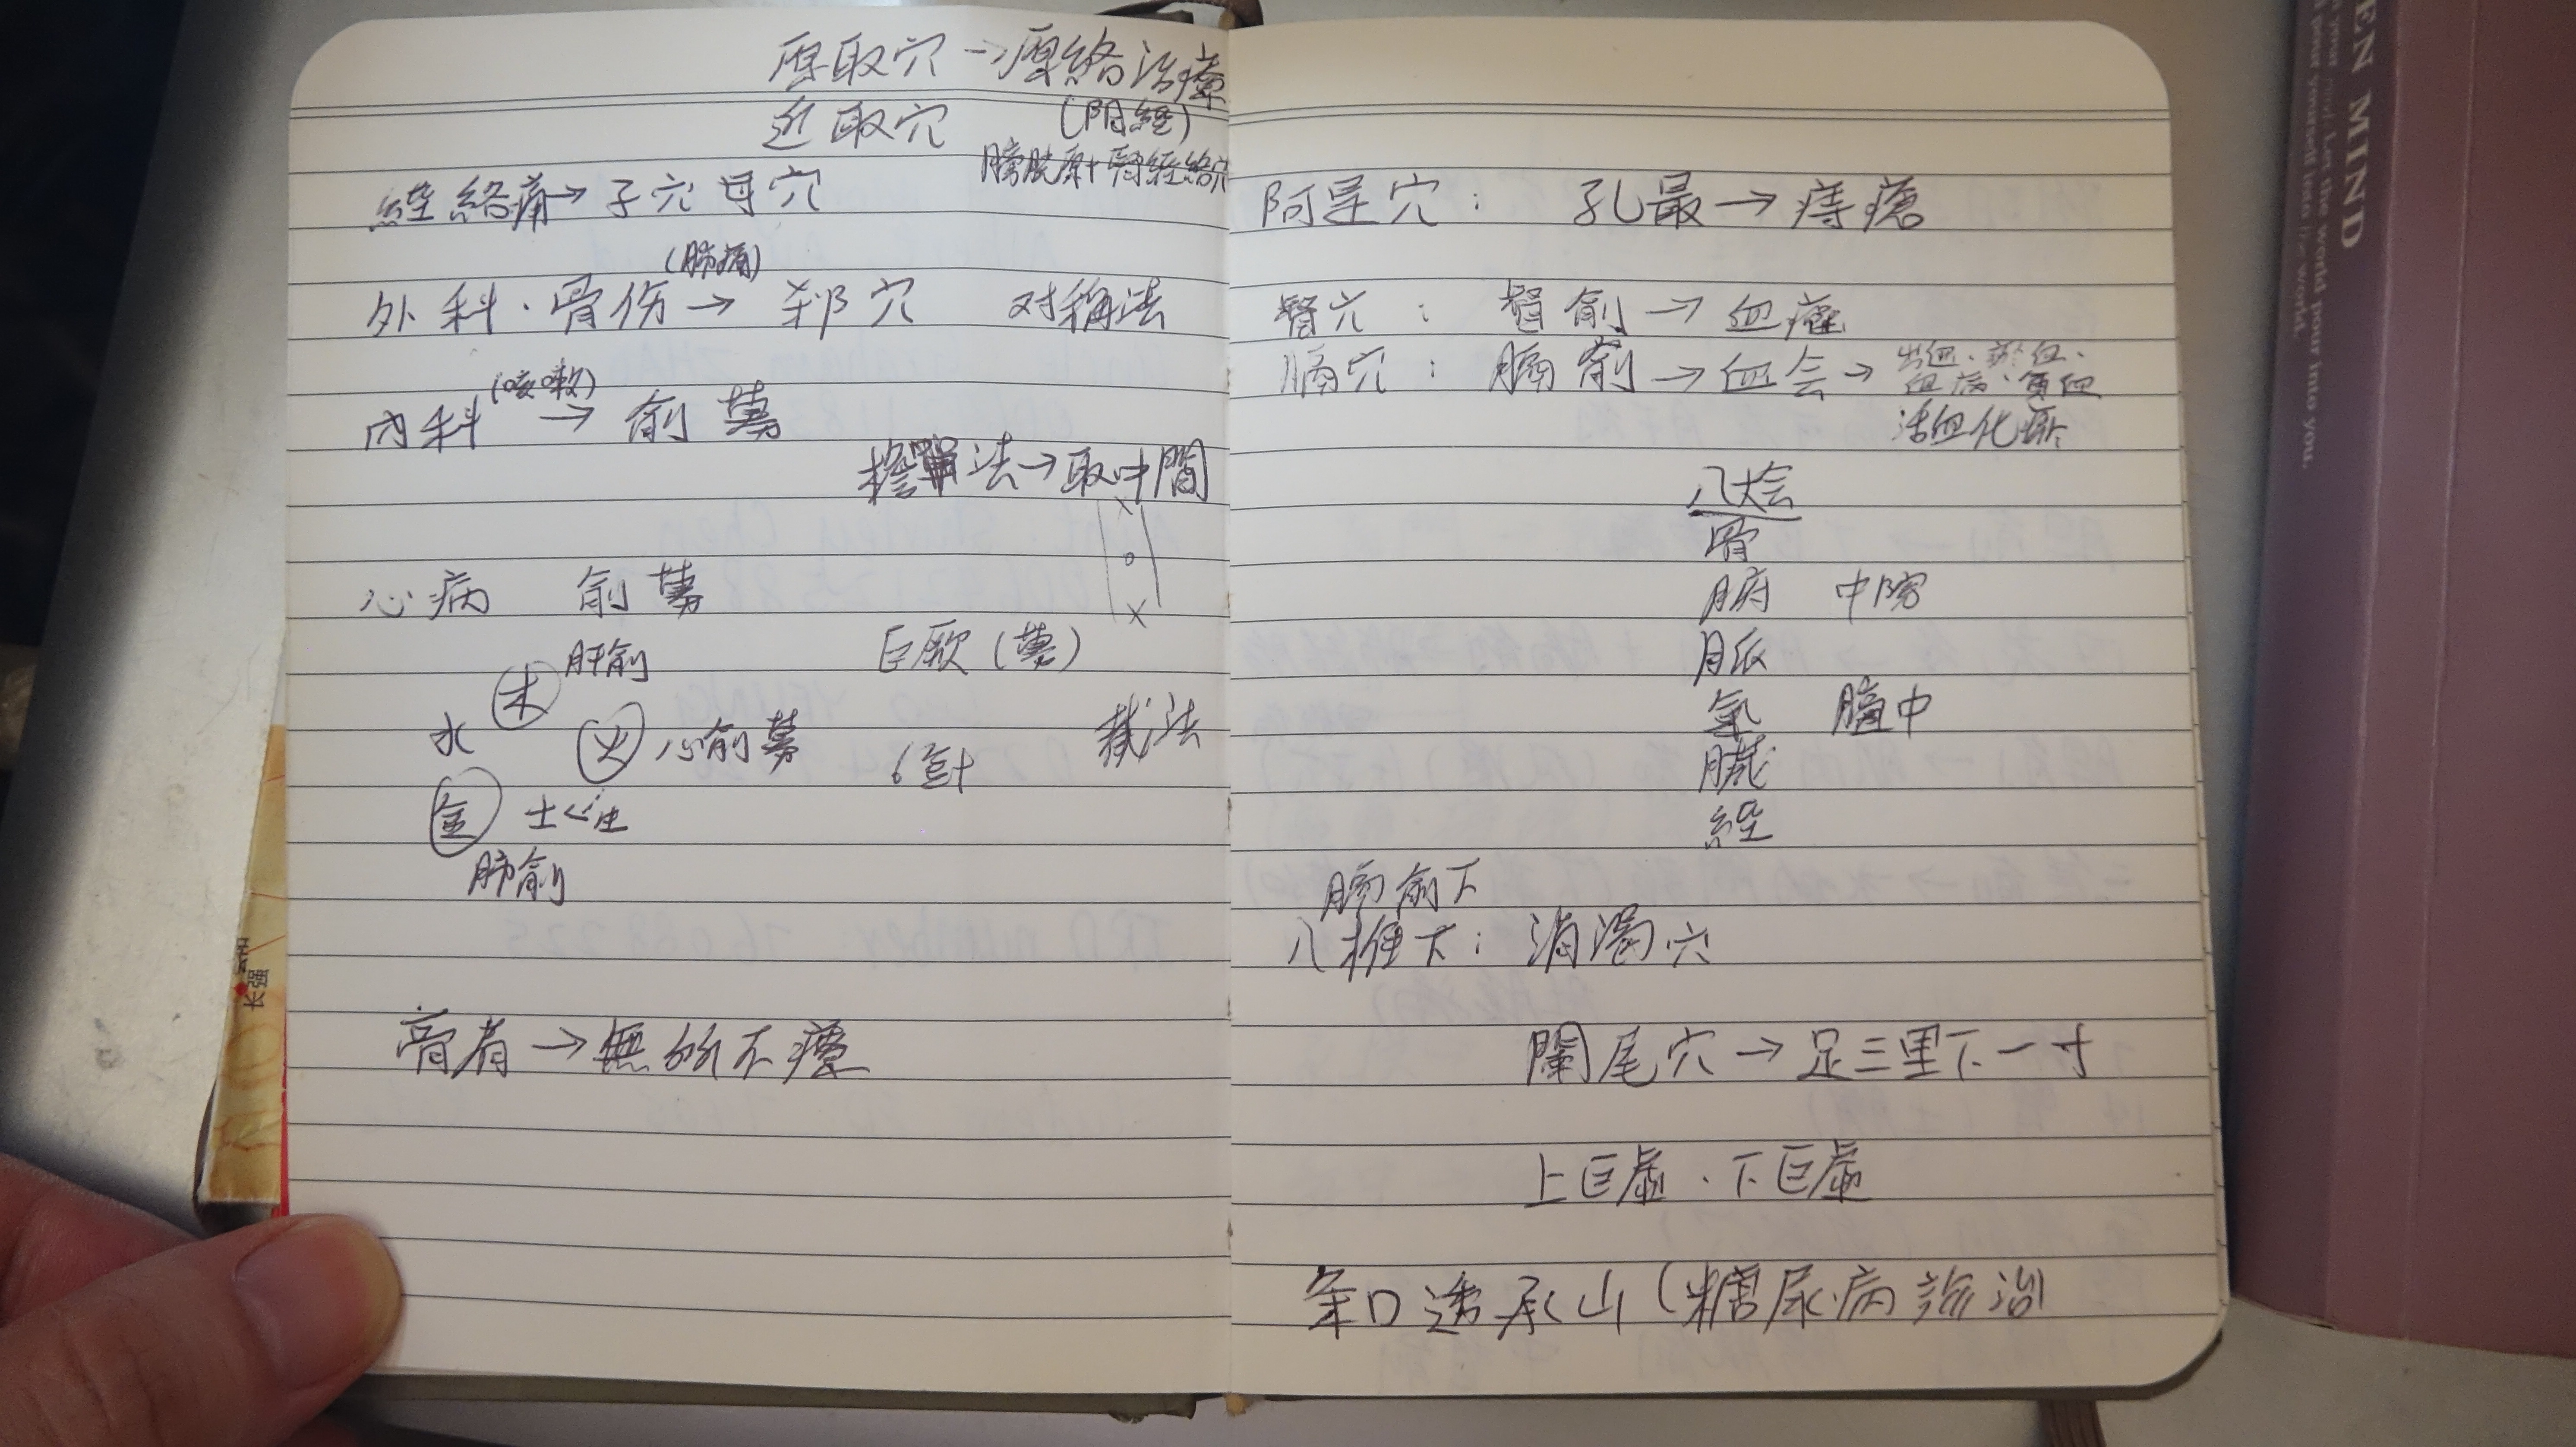 原取穴→原絡治療
近取穴 (陰經)
膀胱原+腎經絡穴
經絡痛→子穴母穴
(肺痛)
外科·骨伤→郄穴 对稱法
(咳嗽)
內科→俞募
擔單法→取中間
x
o
x
心病 俞募
肝俞 巨厥(募)
木
水 火 心俞募 6針 截法
金 土
肺俞
膏肓→無所不療
阿是穴: 孔最→痔瘡
督穴: 督俞→血癌
膈穴: 膈俞→血会→出血、瘀血、
血病、貧血
活血化瘀
八大会
骨
腑 中院
脈
氣 膻中
臟
經
膈俞下
八椎下: 消渴穴
闌尾穴→足三里下一寸
上巨虛、下巨虛
条口透承山(糖尿病診治
EN MIND
Let the world pour into you.
pour yourself into the world.
长强